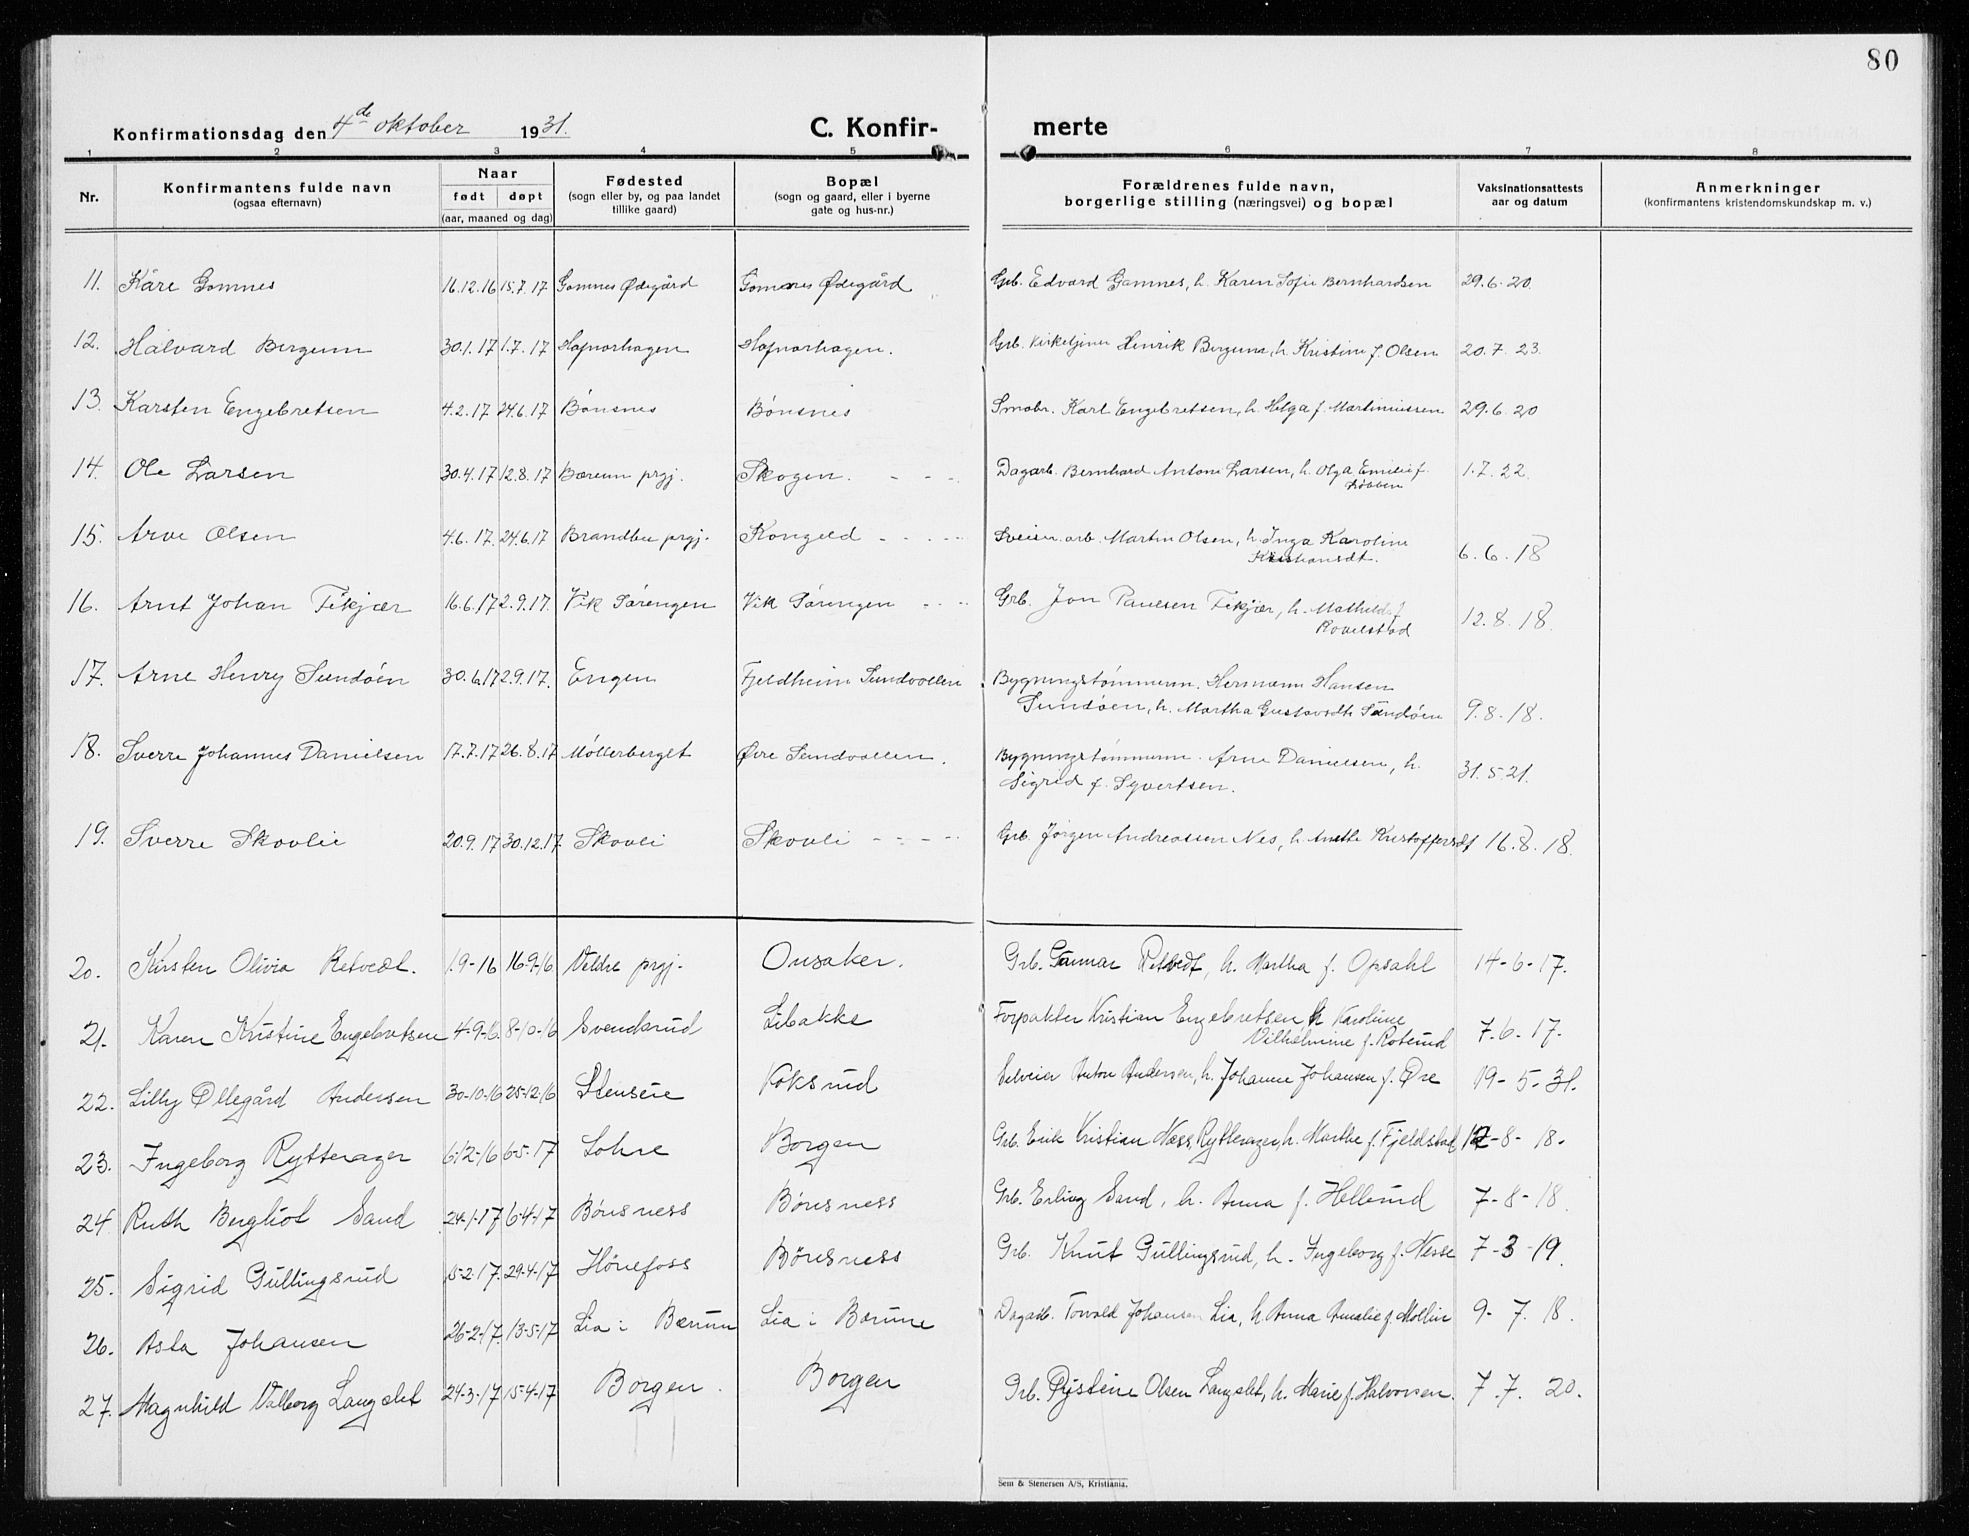 80
Konfirmationsdag den 4de oktober 1931. C. Konfir- merte
1 2 3 4 5 6 7 8
Nr. Konfirmantens fulde navn (ogsaa efternavn) Naar født døpt (aar, maaned og dag) Fødested (sogn eller by, og paa landet tillike gaard) Bopæl (sogn og gaard, eller i byerne gate og hus-nr.) Forældrenes fulde navn, borgerlige stilling (næringsvei) og bopæl Vaksinationsattests aar og datum Anmerkninger (konfirmantens kristendomskundskap m. v.)
11. Kåre Gomnes 16.12.16 15.7.17 Gomnes Ødegård Gomnes Ødegård Grb. Edvard Gomnes, h. Karen Sofie Bernhardsen 29.6.20.
12. Halvard Bergum 30.1.17 1.7.17 Hafnorhagen Hafnorhagen. Grb. Kirketjener Henrik Bergum, h. Kristine f. Olsen 20.7.23.
13. Karsten Engebretsen 4.2.17 24.6.17 Bønsnes Bønsnes Småbr. Karl Engebretsen, h. Helga f. Martiniussen 29.6.20
14. Ole Larsen 30.4.17 12.8.17 Bærum prgj. Skogen. - - - Dagarb. Bernhard Antone Larsen, h. Olga Emilie f.
1.7.22.
15. Arve Olsen 4.6.17. 24.6.17 Brandbu prgj. - - - - Sveiser.arb. Martin Olsen, h. Inga Karoline
Kristiansdt. 6.6.18
16. Arnt Johan Fekjær 16.6.17 2.9.17. Vik Sørengen Vik Sørengen - - - Grb. Jon Paulsen Fekjær, h. Mathilde f.
12.8.18.
17. Arne Henry Sundøen 30.6.17 2.9.17. Engen Fjeldheim Sundvollen Bygningstømmerm. Hermann Hansen
Sundøen, h. Martha Gustavsdt. Sundøen 9.8.18.
18. Sverre Johannes Danielsen 17.7.17 26.8.17 Møllerberget Øvre Sundvollen. Bygningstømmerm. Arne Danielsen, h.
Sigrid f. Syvertsen. 31.5.21.
19. Sverre Skovlie 20.9.17 30.12.17. Skovli Skovli - - - - Grb. Jørgen Andreassen Nes, h. Anette Kristoffersdt 16.8.18.
20. Kirsten Olivia Retvedt. 1.9-16 16-9-16 Veldre prgj. Onsaker. Grb. Gunnar Retvedt, h. Martha f. Opsahl 14-6-17.
21. Karen Kristine Engebretsen 4-9-16. 8-10-16 Svendsrud Libakke Forpakter Kristian Engebretsen h Karoline
Vilhelmine f. Roterud 7-6-17.
22. Lilly Ollegård Andersen 30-10-16 25-12-16 Koksrud Selveier Anton Andersen, h. Johanne Johansen f. Øre 19-5-31.
23. Ingeborg Rytterager 6-12-16 6-5-17 Lohre Borgen Grb. Erik Kristian Næss Rytterager, h. Marthe f. Fjeldstad 12-8-18.
24. Ruth Bergliot Sand 24-1-17 6-4-17 Bønsness Bønsness Grb. Erling Sand, h. Anna f. Hellerud 7-8-18.
25. Sigrid Gullingsrud 15-2-17. 29-4-17 Hønefoss Bønsness Grb. Knut Gullingsrud, h. Ingeborg f. Nesse 7-3-19.
26. Asta Johansen 26-2-17. 13-5-17 Lia i Bærum Lia i Bærum Dagarb. Torvald Johansen Lia, h. Anna Amalie f. Mollin 9-7.18.
27. Magnhild Valborg Langslet 24-3-17 15-4-17 Borgen. Borgen Grb. Øystein Olsen Langslet, h. Marie f. Halvorsen. 7.7.20.
Sem & Stenersen A/S, Kristiania.